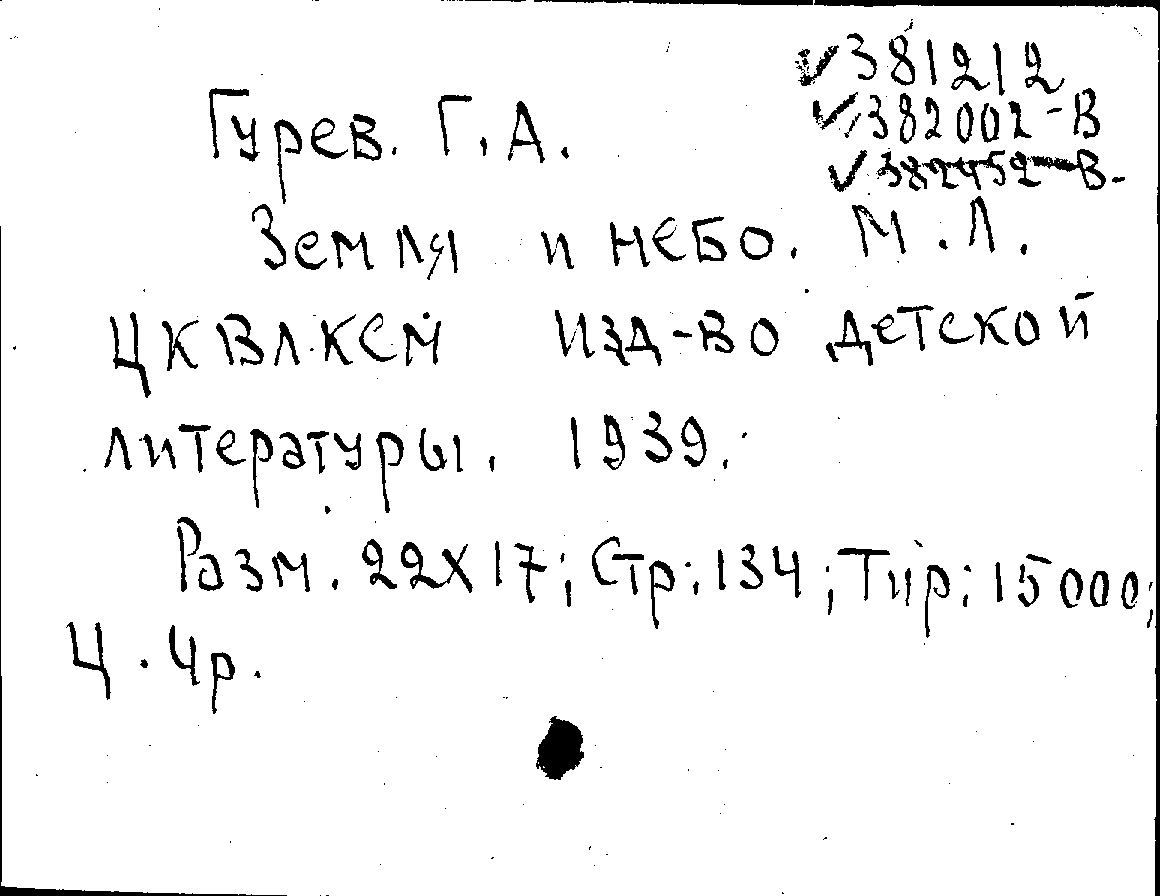 ✓381212
✓382002-В
✓382452-В.
Гурев. Г.А.
Земля и небо. М.Л.
ЦК ВЛКСМ изд-во детской
литературы. 1939.
Разм. 22х17; Стр: 134; Тир: 15000;
Ц. 4р.